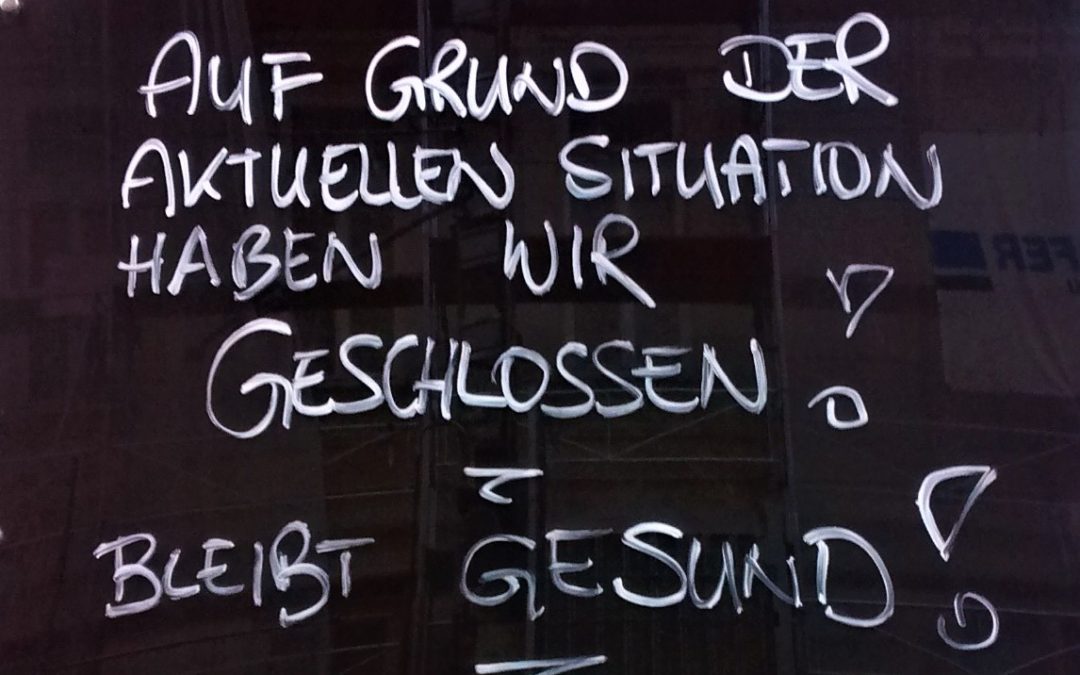 AUF GRUND DER
AKTUELLEN SITUATION
HABEN WIR
GESCHLOSSEN!
BLEIBT GESUND!